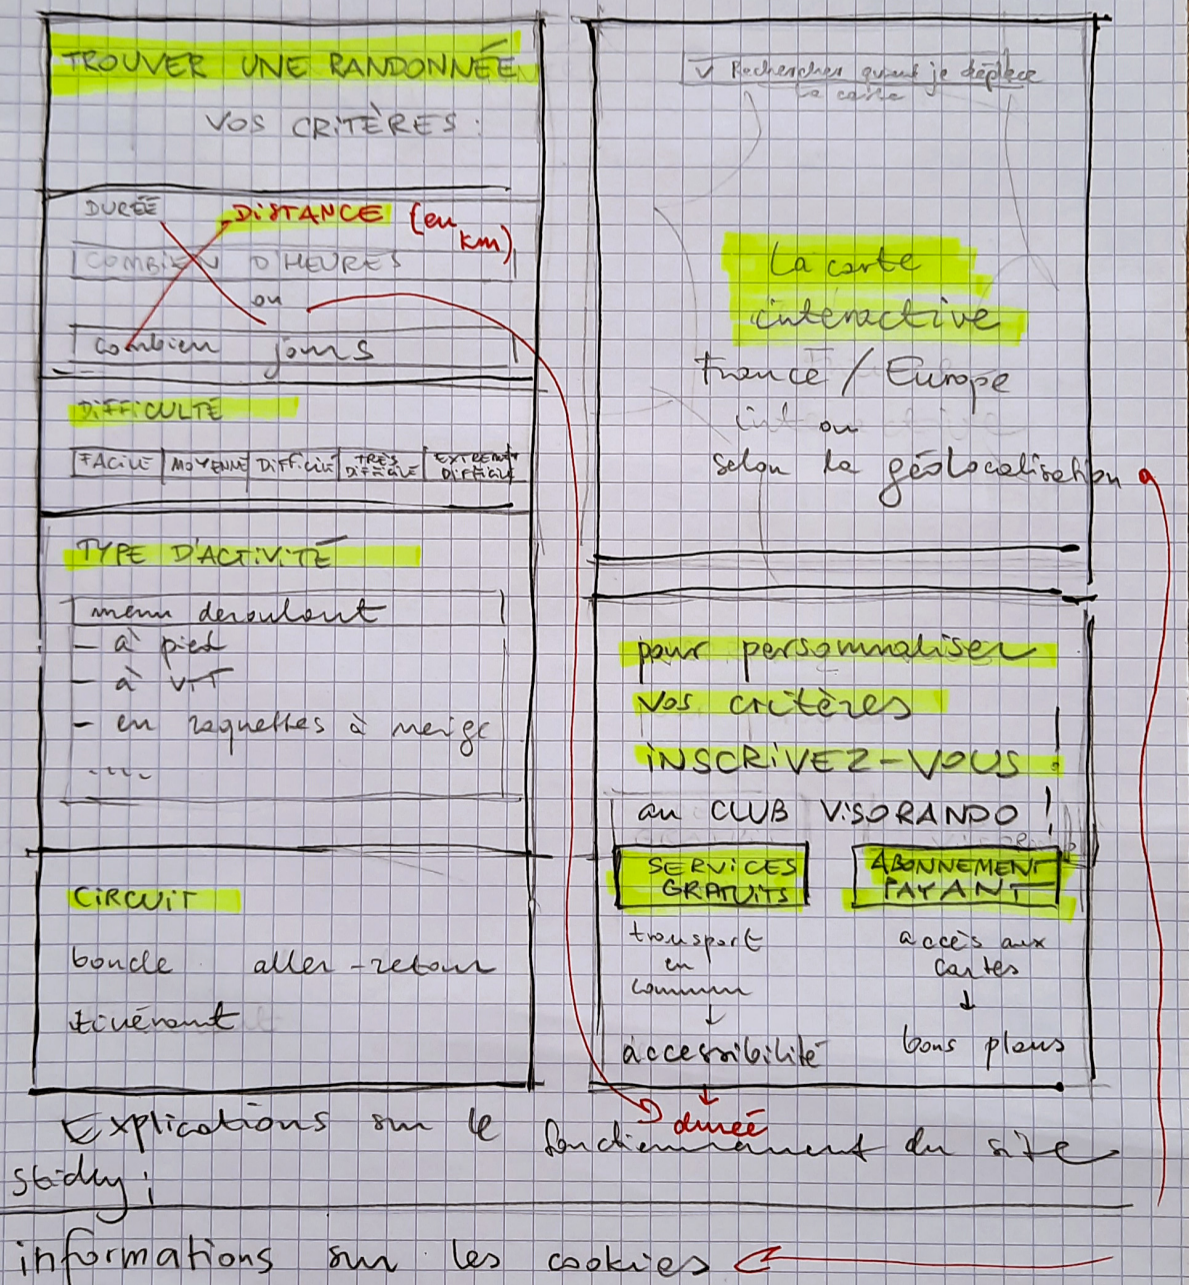 TROUVER UNE RANDONNÉE
VOS CRITÈRES :
DURÉE DISTANCE (en km)
COMBIEN D'HEURES
ou
combien jours
DIFFICULTÉ
FACILE MOYENNE DIFFICILE TRÈS DIFFICILE EXTREMEMT DIFFICILE
TYPE D'ACTIVITÉ
menu deroulant
- à pied
- à VTT
- en raquettes à neige
....
CIRCUIT
boucle aller-retour
itinérant
Rechercher quand je déplace
la carte
La carte
interactive
France / Europe
ou
selon la géolocalisation
pour personnaliser
vos critères
INSCRIVEZ-VOUS
au CLUB VISORANDO !
SERVICES
GRATUITS
transport
en
commun
↓
accessibilité
↓
durée
ABONNEMENT
PAYANT
accès aux
cartes
↓
bons plans
Explications sur le fonctionnement du site
informations sur les cookies